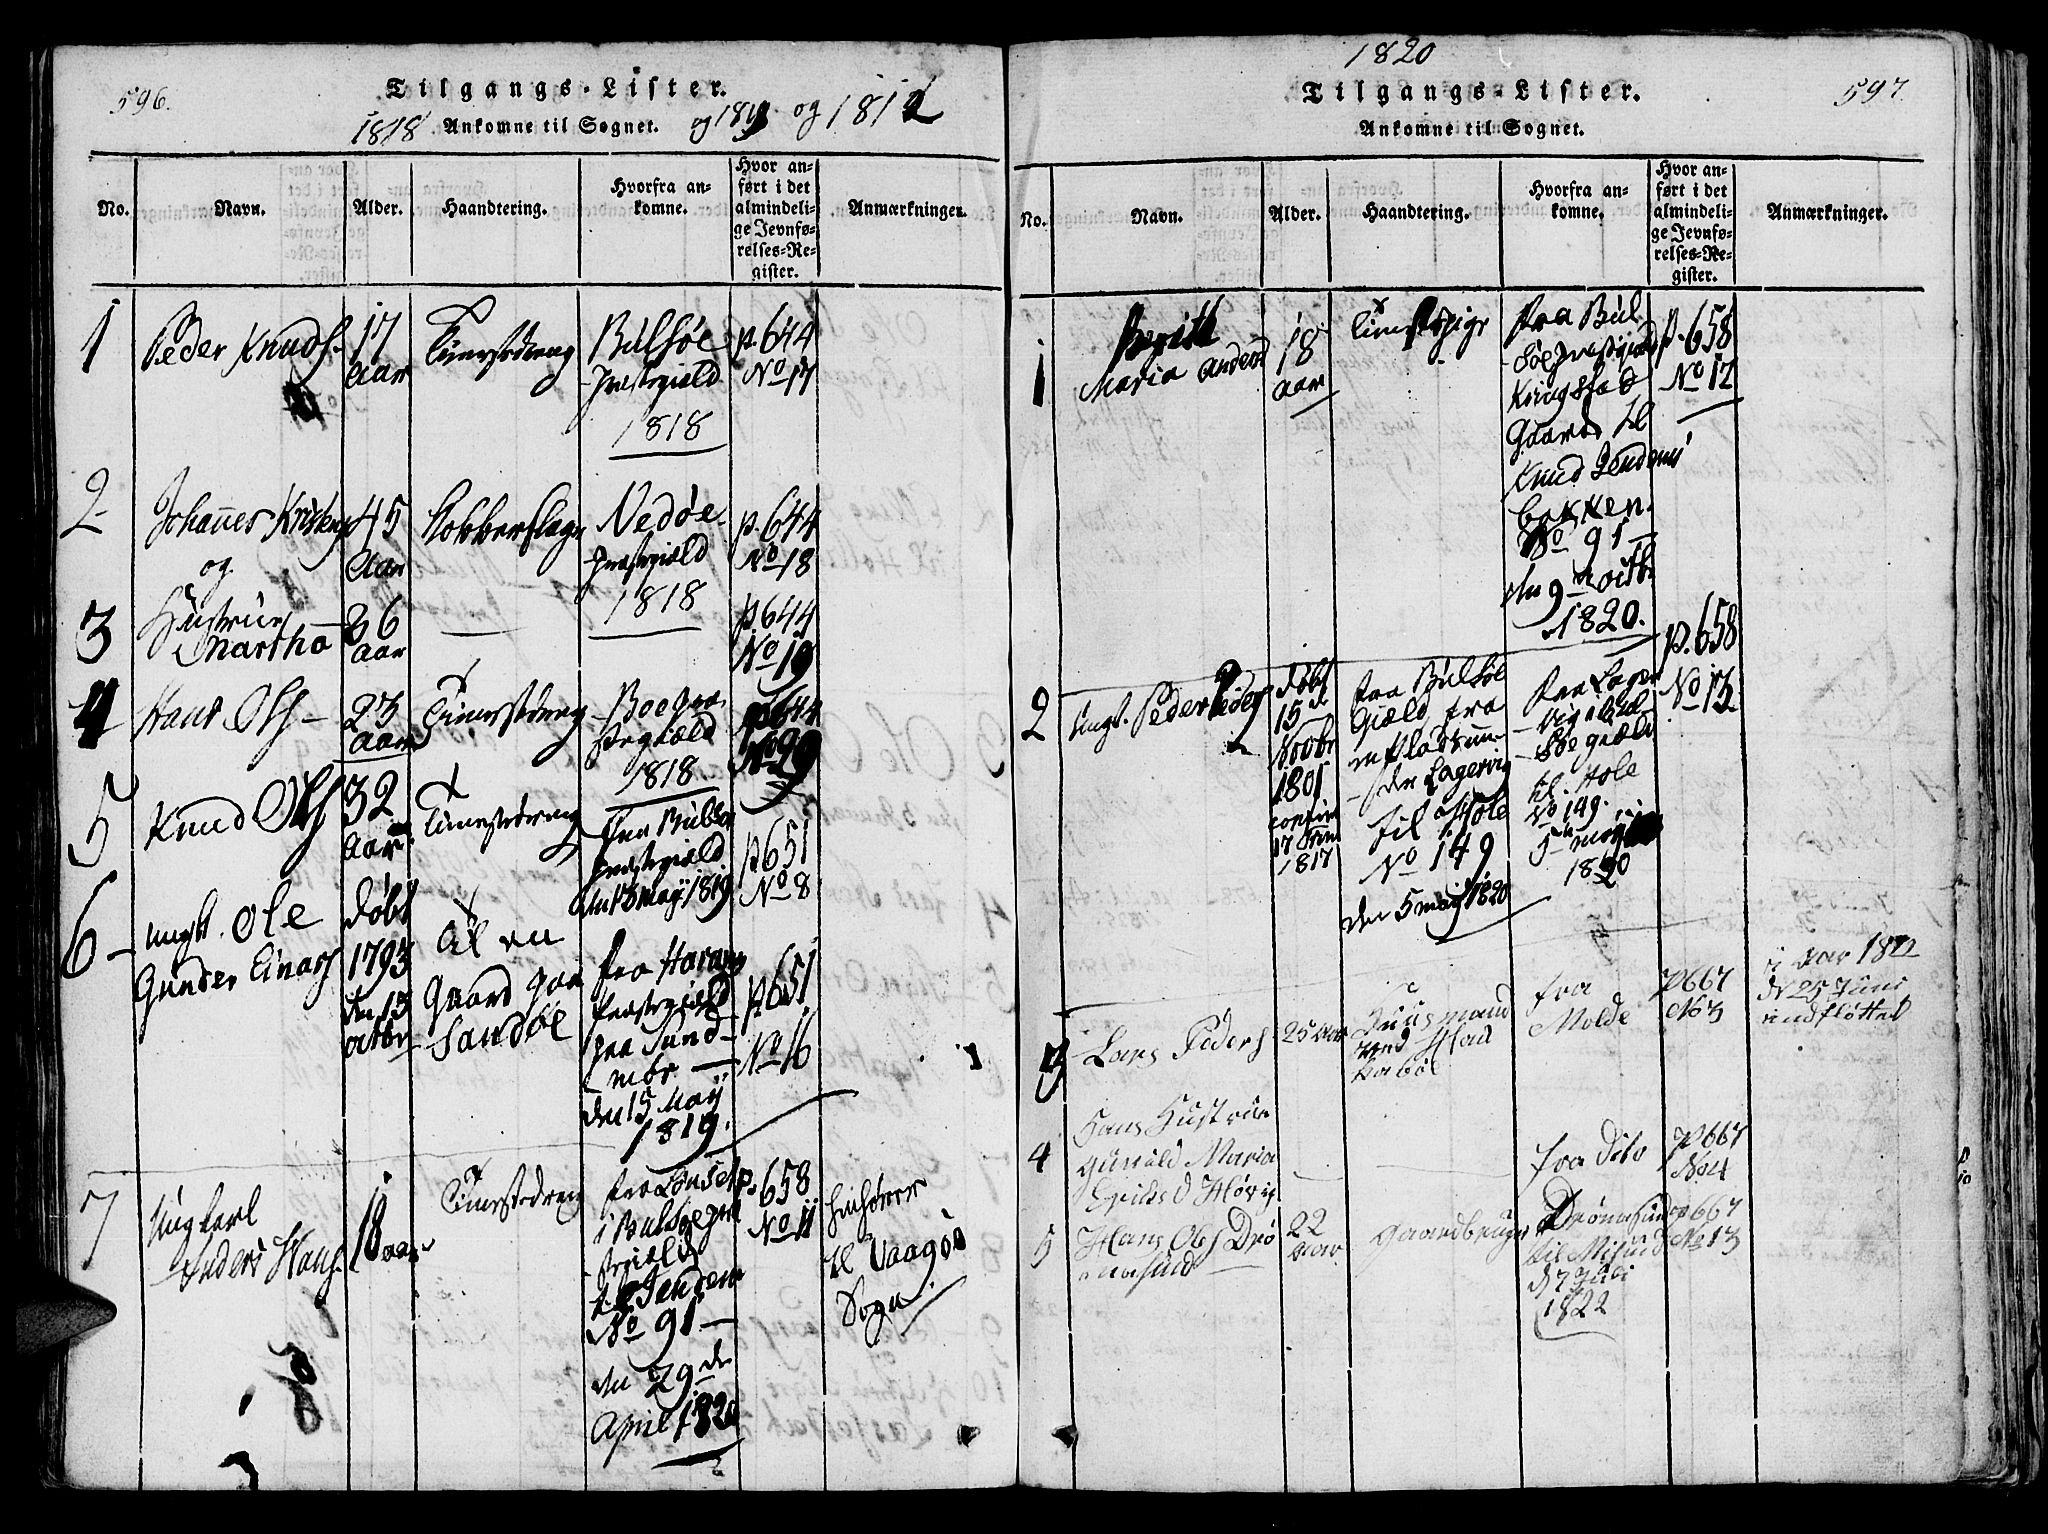 596.
Tilgangs-Lister.
1818 Ankomne til Sognet. og 1819 og 181
No.
Navn.
Alder.
Haandtering.
Hvorfra an-
komne.
Hvor an-
ført i det
almindeli-
ge Jevnfø-
relses-Re-
gister.
Anmærkninger.
1
Peder Knuds
17
aar
Tienestedreng
Bulsøe
Præstegiæld
1818
p. 644
No 17
2
Johannes
og
45
aar
Nedøe
Præstegiæld
1818
p. 644
No 18
3
Hustrue
Martha
36
aar
p. 644
No 19
4
Hans Ols
23
aar
Tienestedreng
1818
p. 644
5
Knud Ols
32
aar
Tienestedreng
fra Bulsøe
Præstegiæld
den 13 maij 1819
p 651
No 8
6
ungk. Ole
Gunder Einars
døbt
1793
den 13
octbr
til en
Gaard paa
Sandøe
fra Haram
Præstegiæld
paa Sund-
mør
den 15 Maij
1819.
p 651
No 16
7
Ungkarl
Anders Hans
18 aar
Tienestedreng
fra
i Bulsøe Præ-
stegiæld
til Jendem
No 91
den 29de
April 1820
p. 658
No 11
henhører
til Vaagøe
Sogn
1820
Tilgangs-Lister.
597.
Ankomne til Sognet.
No.
Navn.
Alder.
Haandtering.
Hvorfra an-
komne.
Hvor an-
ført i det
almindeli-
ge Jevnfø-
relses-Re-
gister.
Anmærkninger.
1
Beritt
Maria Anders
18
aar
Tienestepige
fra Bul
søe Præstegiæld
Kringstad
Gaard til
Knud Jendem
bakken
No 91
den 9 octbr
1820.
p. 658
No 12
2
ungk. Peder Peders
døbt
15 de
Novbr
1801
confir
17
1817
fra Bulsøe
Giæld fra
en Plads un-
der Lagervig
til Hole
No 149
den 5 maij 1820
fra Lager
vig i Bul
søe giæld
til Hole
No 149.
5 maij
1820
p. 658
No 13
3
Lars Peders
25 aar
Huusmand
ved
fra
Molde
P 667
No 3
i aar 1822
d 25 Juni
indfløttet
4
Hans Hustrue
Gunild Maria
Eriksd Høvig
fra Dito
P 667
No 4
5
Hans Ols Drø
nnesund
22
aar
Gaardbruger
Drønnesund
til Misund
d 7 Juli
1822
P 667
No 13